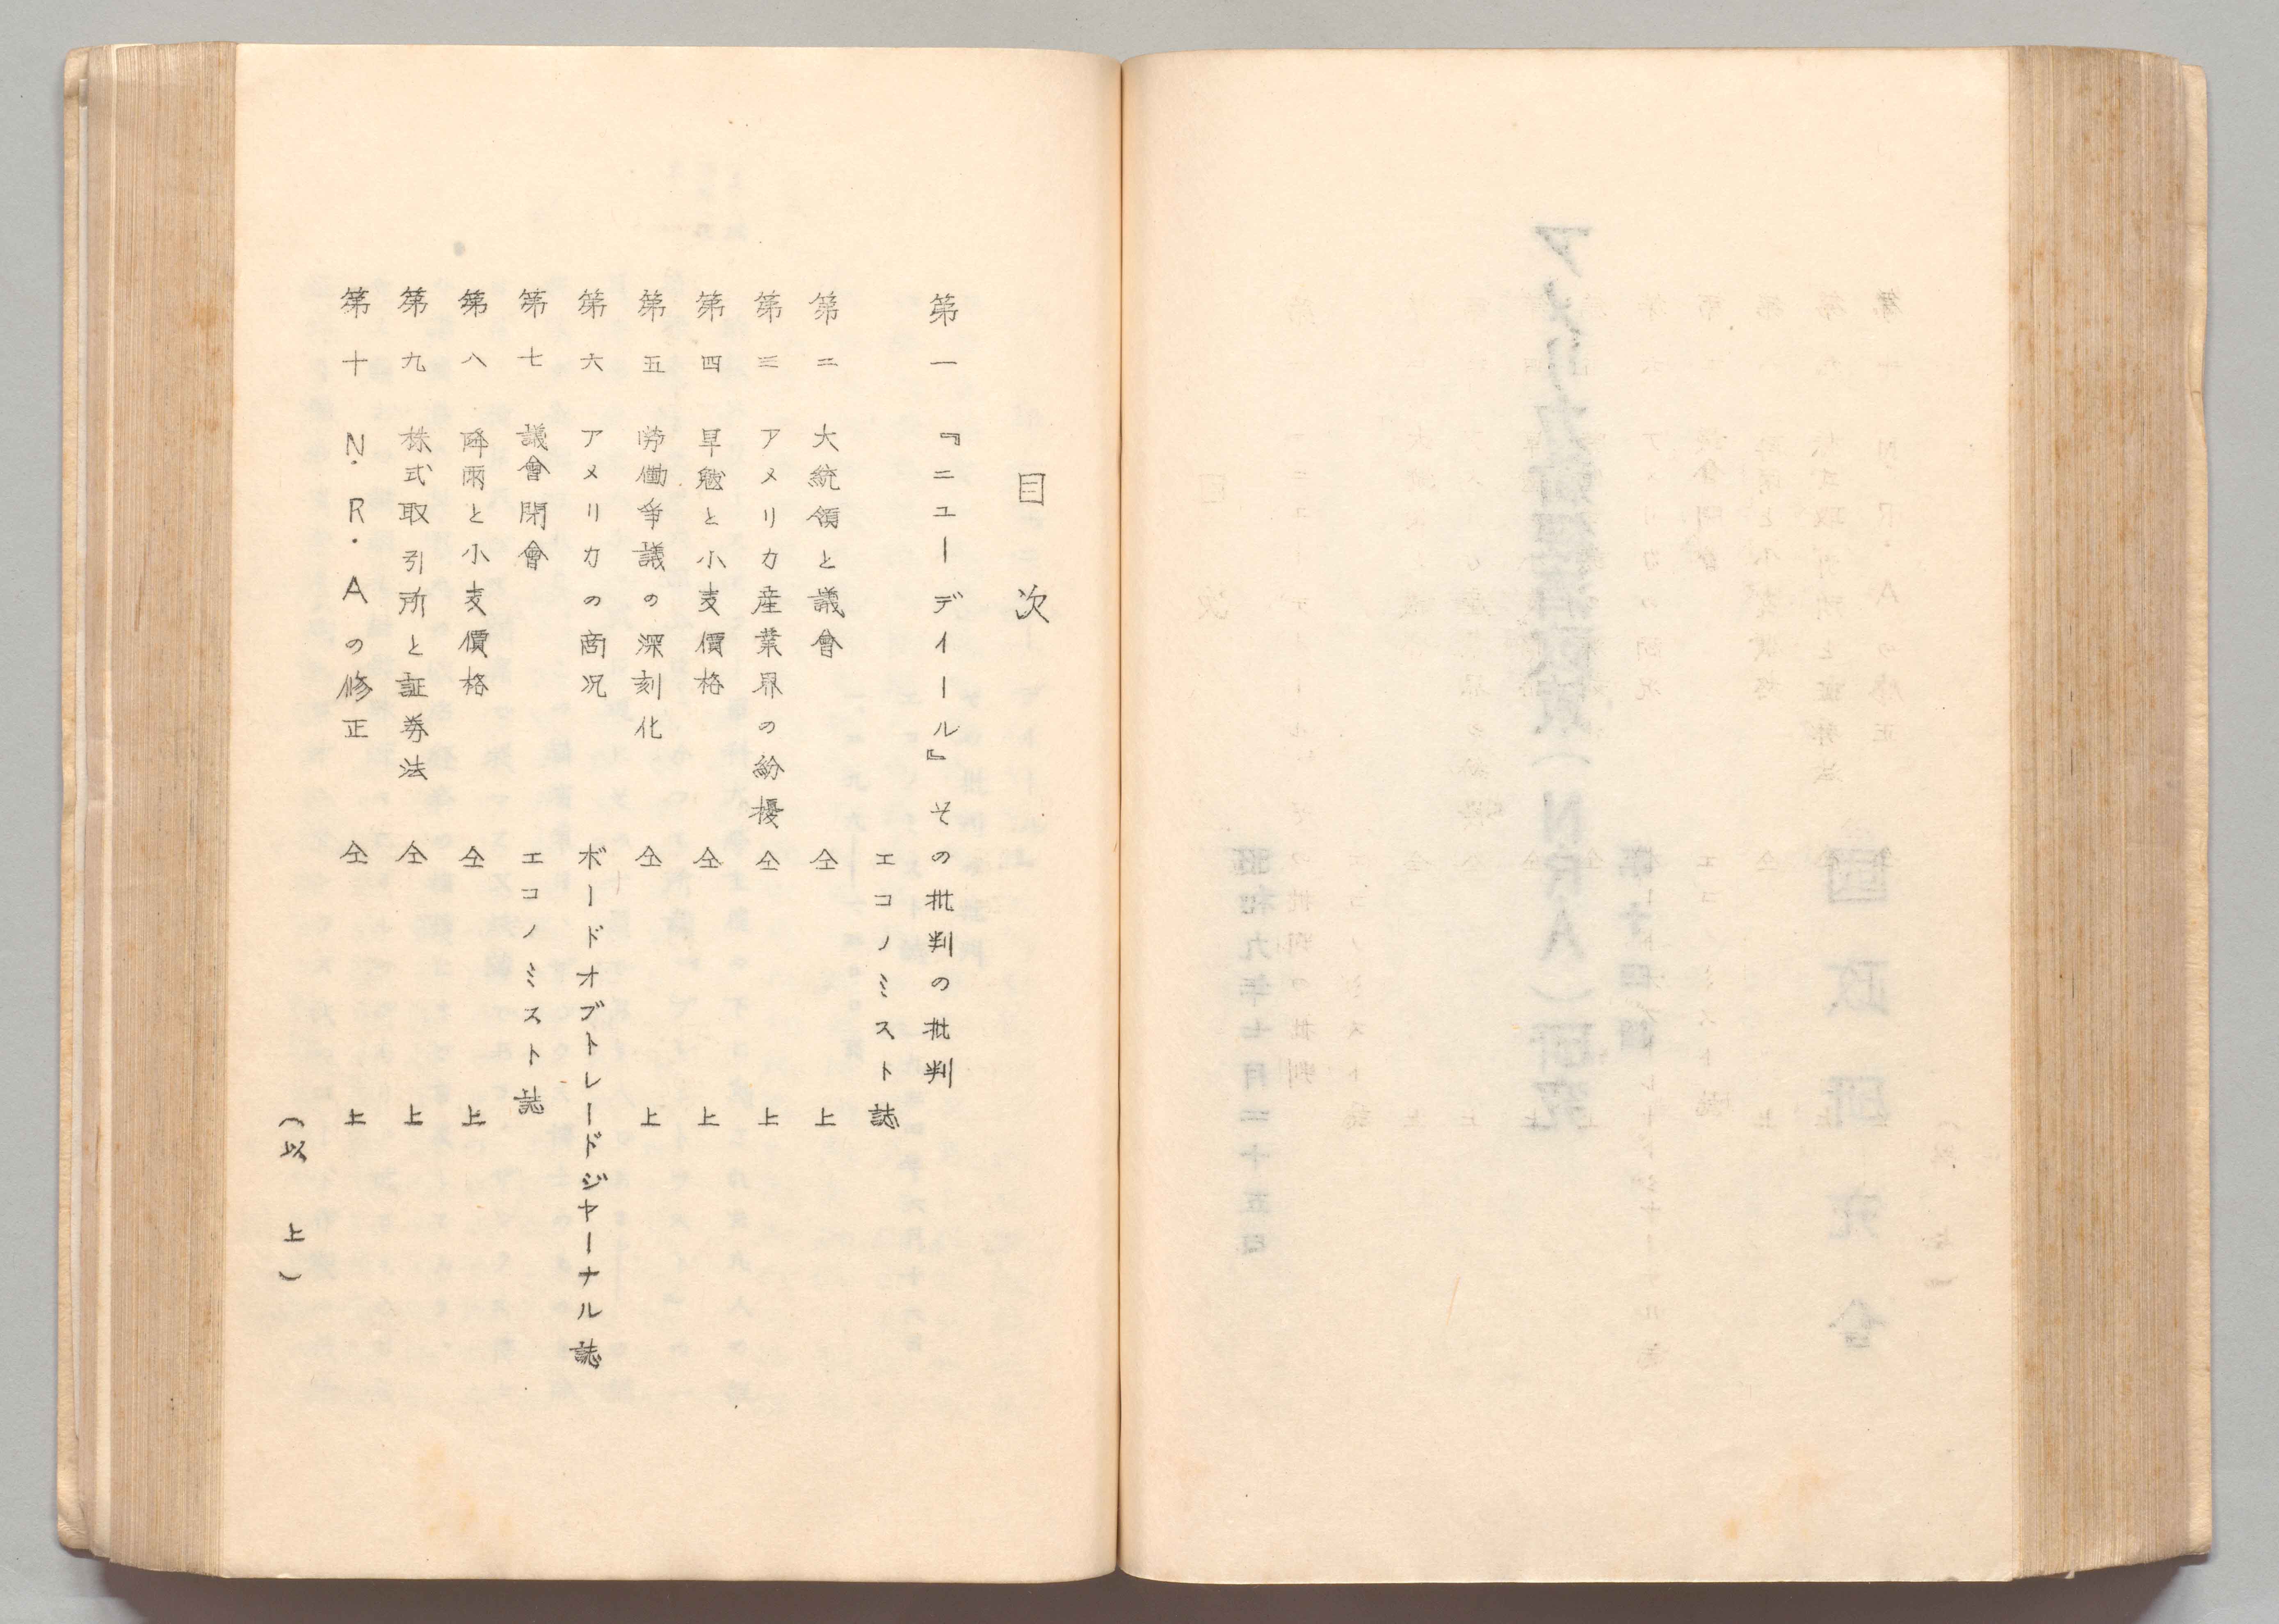 目次
第一 『ニユーデイール』その批判の批判
エコノミスト誌
第二 大統領と議會 仝上
第三 アメリカ産業界の紛擾 仝上
第四 旱魃と小麦價格 仝上
第五 勞働爭議の深刻化 仝上
第六 アメリカの商况 ボードオブトレードジヤーナル誌
第七 議會閉會 エコノミスト誌
第八 降雨と小麦價格 仝上
第九 株式取引所と証券法 仝上
第十 N.R.Aの修正 仝上
(以上)